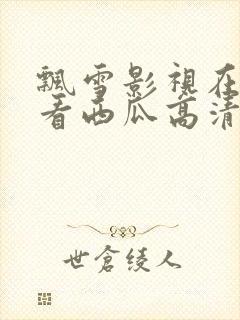 飄雪影視在
看西瓜高清
世倉綾人